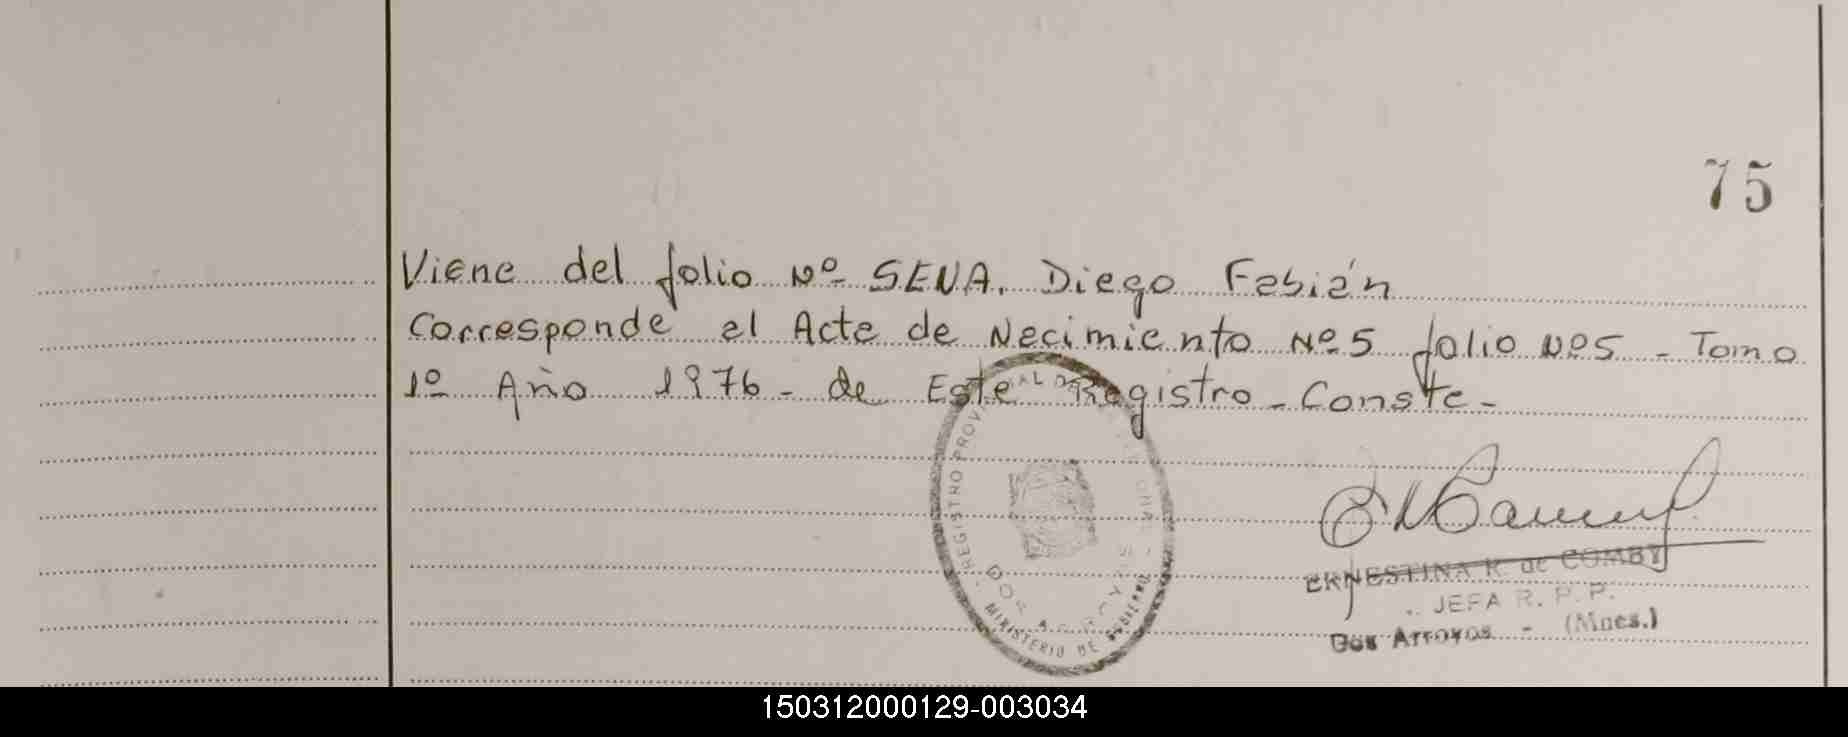 75
Viene del folio Nº SENA. Diego Fabián
Corresponde al Acta de Nacimiento Nº 5 folio Nº 5 - Tomo
1º Año 1976 - de Este Registro - Conste -
REGISTRO PROVINCIAL DE
DOS ARROYOS
MINISTERIO DE GOBIERNO
ERNESTINA R. de COMBY
JEFA R. P. P.
Dos Arroyos - (Mnes.)
150312000129-003034